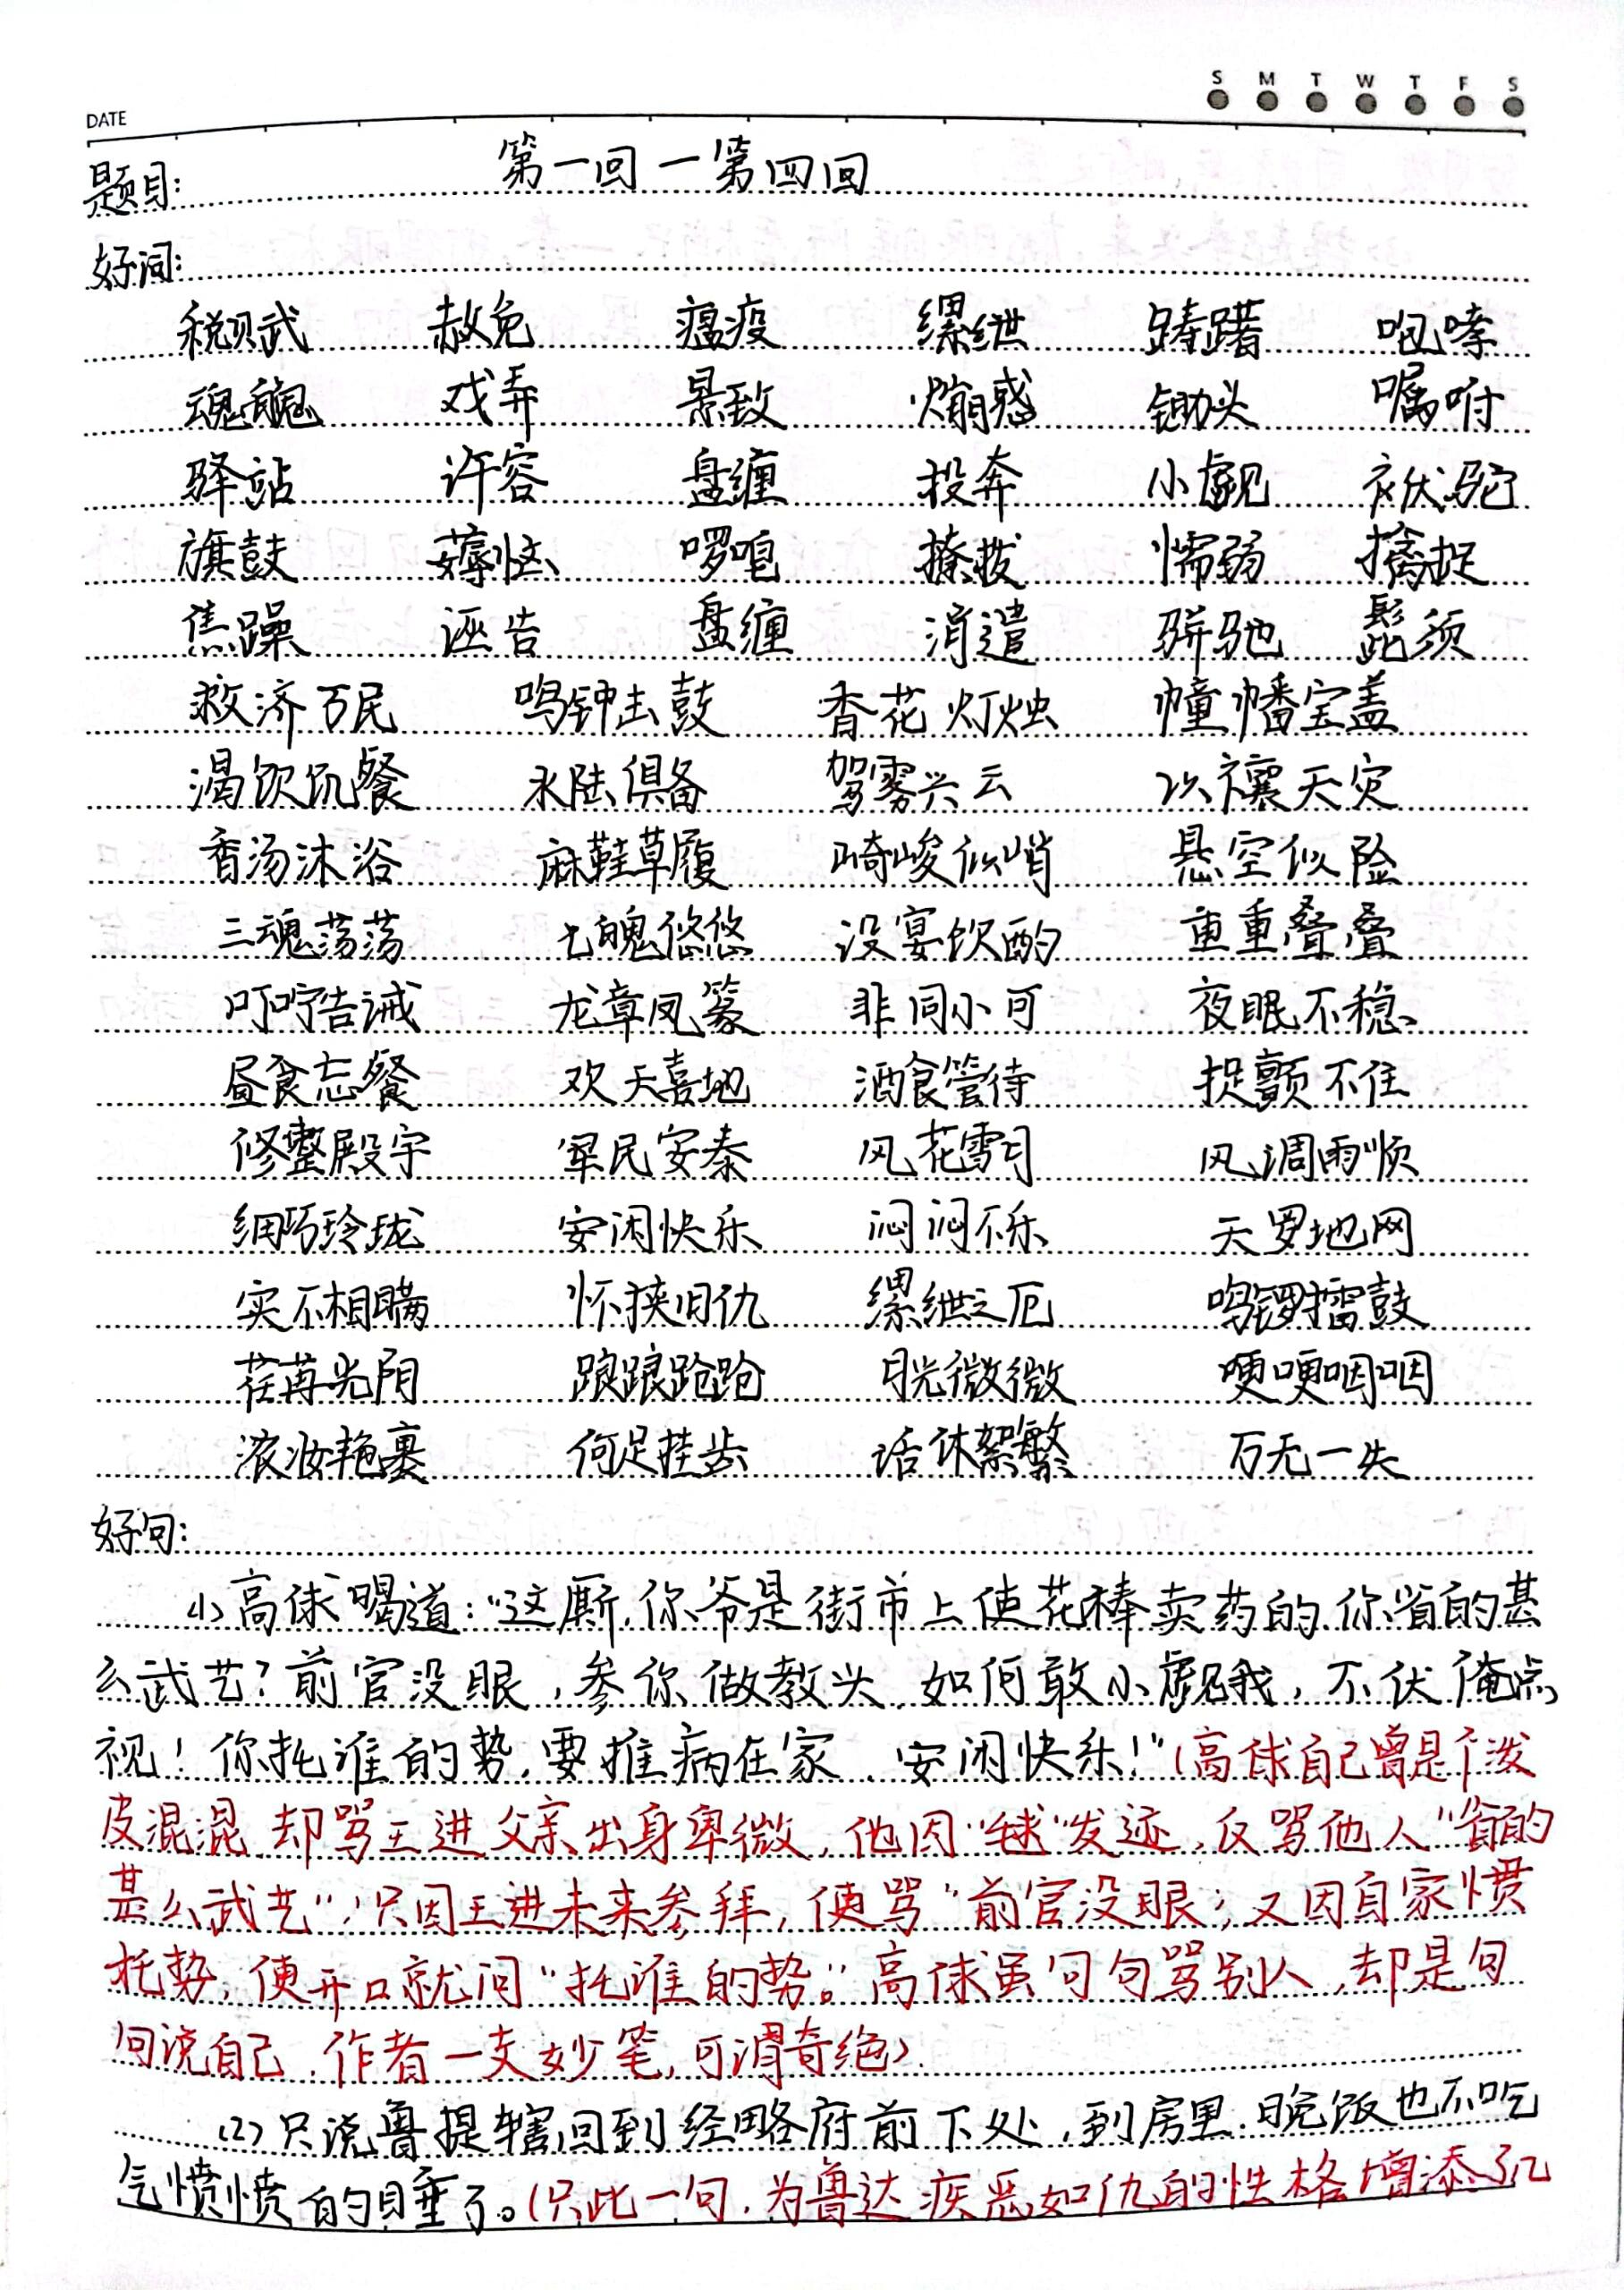 S M T W T F S
DATE
题目: 第一回一第四回
好词:
税赋 赦免 瘟疫 缧绁 踌躇 咆哮
魂魄 戏弄 景致 煽惑 锄头 嘱咐
驿站 许容 盘缠 投奔 小觑 伏驼
旗鼓 薅恼 啰唣 撩拨 懦弱 擒捉
焦躁 诬告 盘缠 消遣 骈驰 髭须
救济万民 鸣钟击鼓 香花灯烛 幢幡宝盖
渴饮饥餐 水陆俱备 驾雾兴云 以禳天灾
香汤沐浴 麻鞋草履 崎峻似峭 悬空似险
三魂荡荡 七魄悠悠 设宴饮酌 重重叠叠
叮咛告诫 龙章凤篆 非同小可 夜眠不稳
昼食忘餐 欢天喜地 酒食管待 捉颤不住
修整殿宇 军民安泰 风花雪月 风调雨顺
细巧玲珑 安闲快乐 闷闷不乐 天罗地网
实不相瞒 怀挟旧仇 缧绁之厄 鸣锣擂鼓
荏苒光阴 踉踉跄跄 月光微微 哽哽咽咽
浓妆艳裹 何足挂齿 话休絮繁 万无一失
好句:
(1)高俅喝道:“这厮,你爷是街市上使花棒卖药的,你省的甚
么武艺?前官没眼,参你做教头,如何敢小觑我,不伏俺点
视!你托谁的势,要推病在家,安闲快乐!”(高俅自己曾是个泼
皮混混,却骂王进父亲出身卑微,他因“毬”发迹,反骂他人“省的
甚么武艺”;只因王进未来参拜,便骂“前官没眼;又因自家惯
托势,便开口就问“托谁的势。”高俅虽句句骂别人,却是句
句说自己,作者一支妙笔,可谓奇绝)
(2)只说鲁提辖回到经略府前下处,到房里,晚饭也不吃
气愤愤的睡了。(只此一句,为鲁达疾恶如仇的性格增添了几